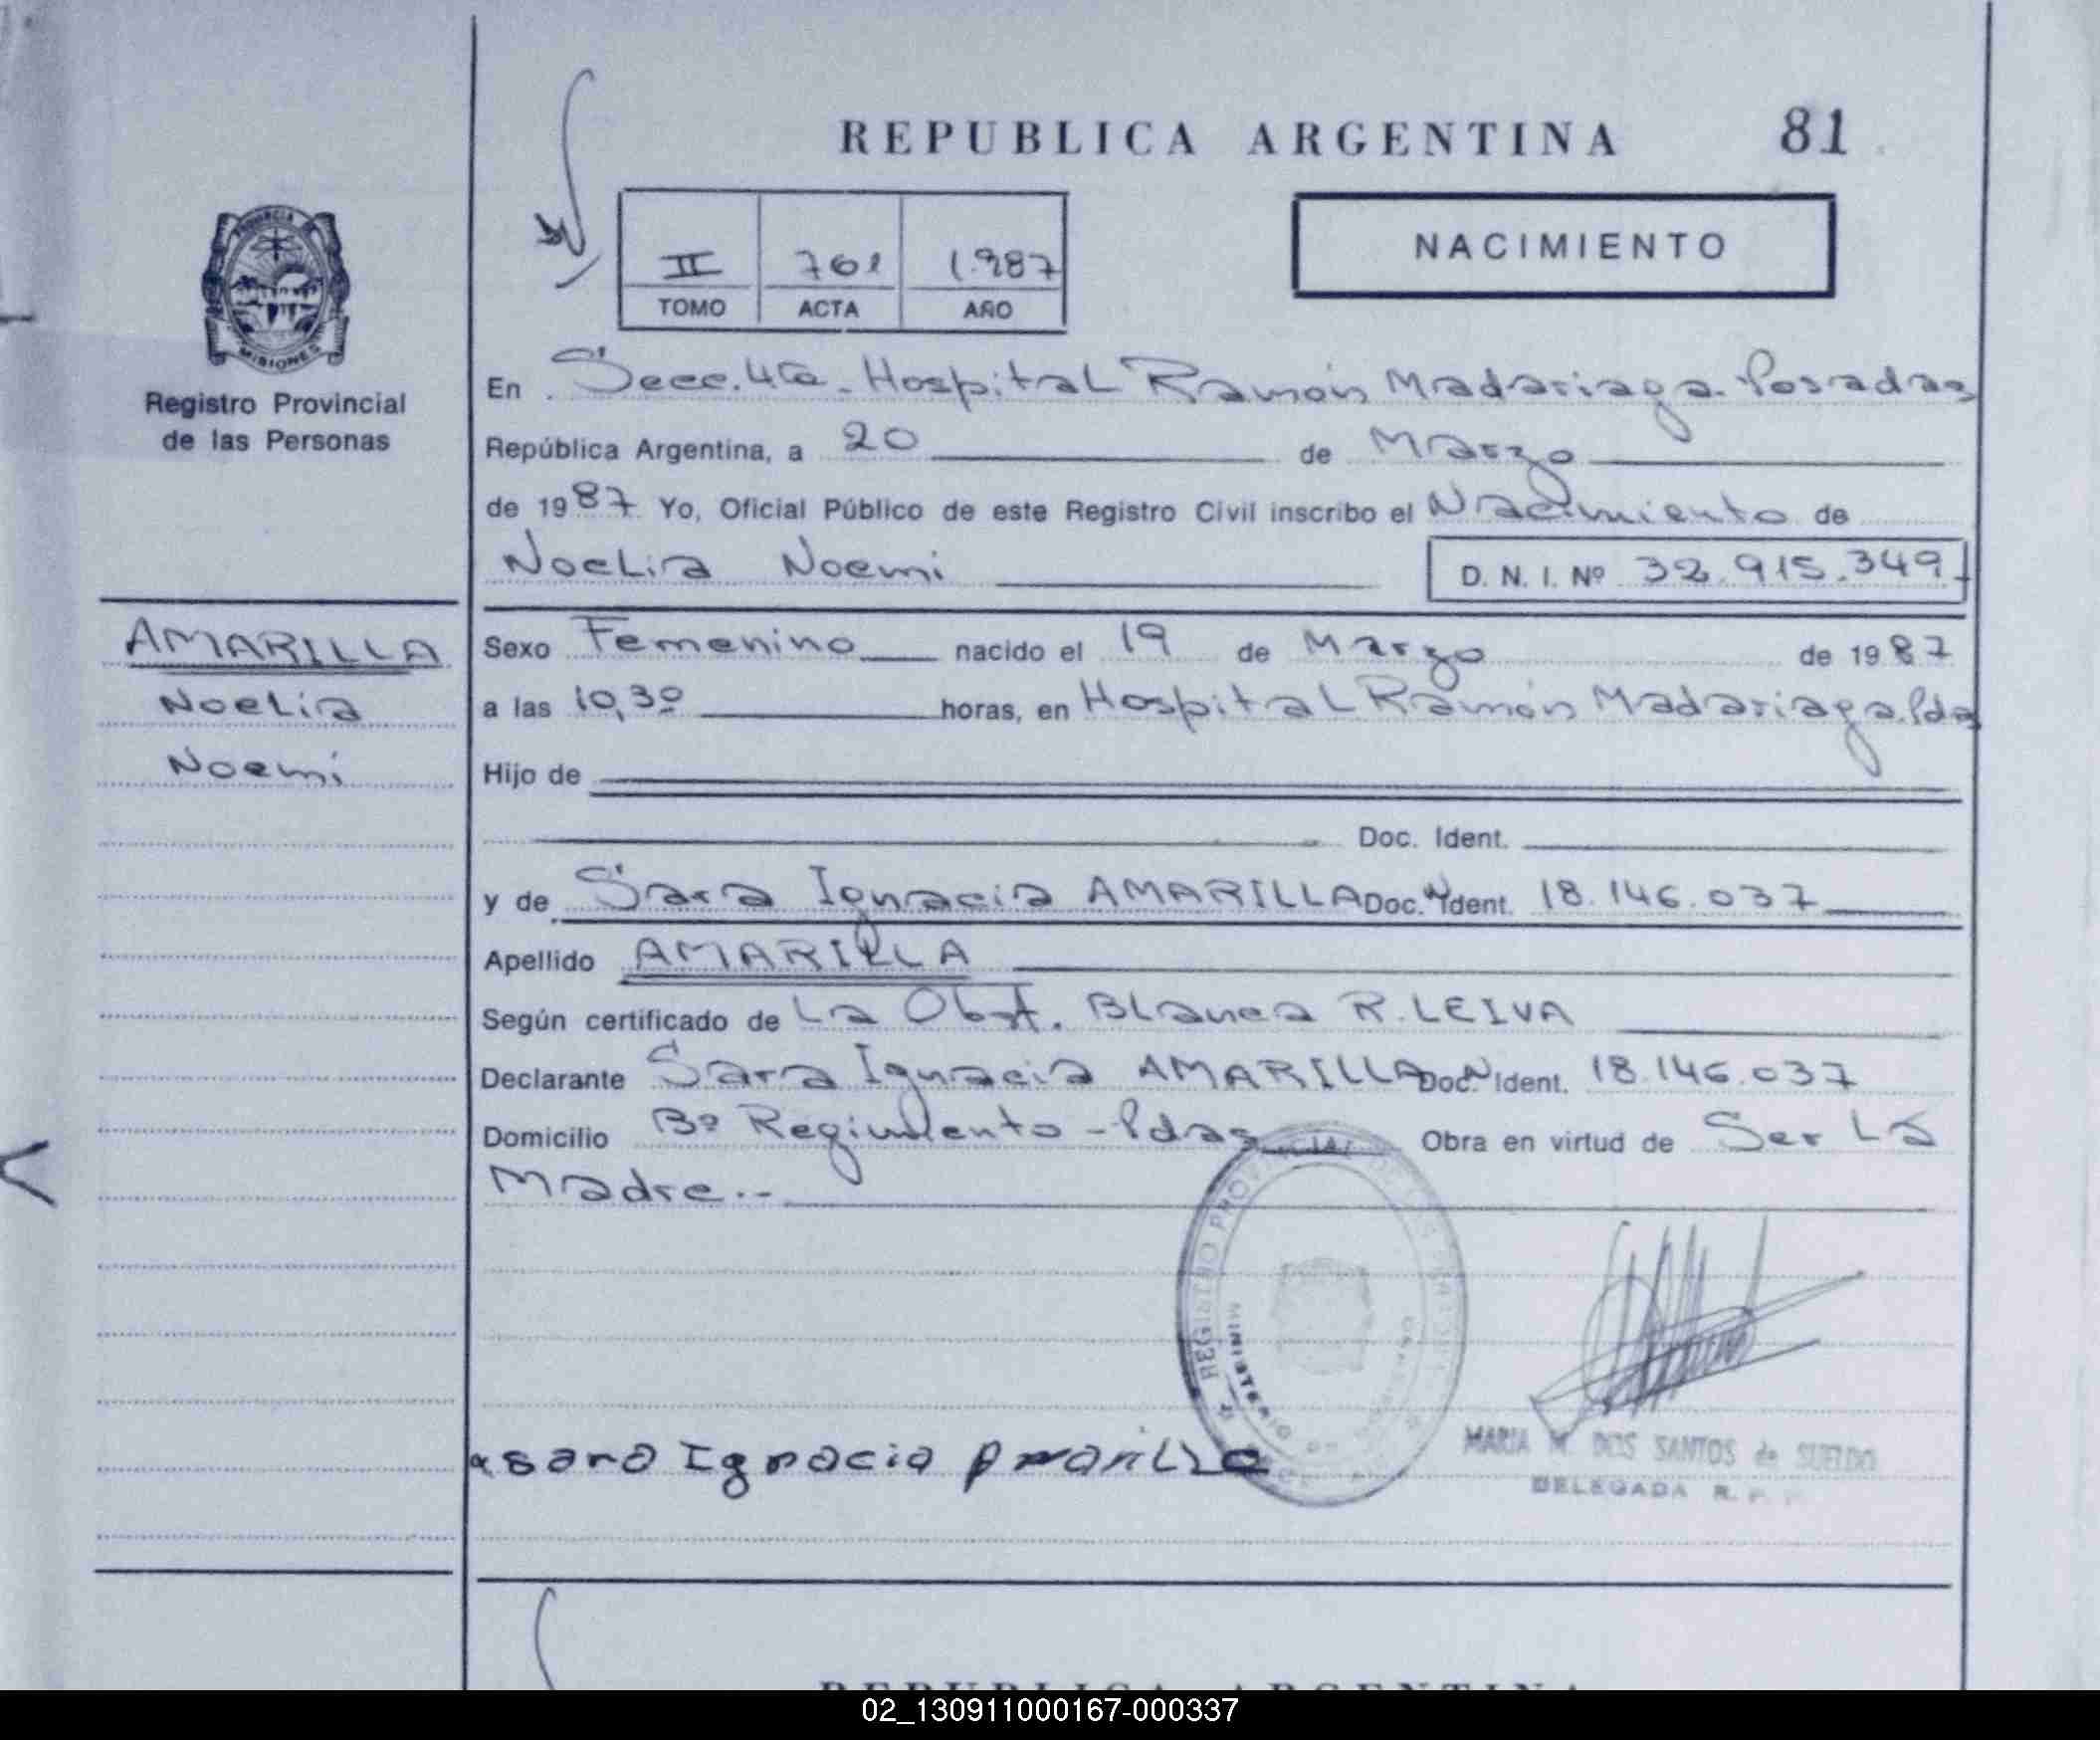 REPUBLICA ARGENTINA 81
NACIMIENTO
II 761 1.987
TOMO ACTA AÑO
PROVINCIA
MISIONES
Registro Provincial
de las Personas
En Secc. 4ta - Hospital Ramón Madariaga. Posadas
República Argentina, a 20 de Marzo
de 1987 Yo, Oficial Público de este Registro Civil inscribo el Nacimiento de
Noelia Noemi D. N. I. Nº 32.915.349
AMARILLA
Noelia
Noemi
Sexo Femenino nacido el 19 de Marzo de 1987
a las 10,30 horas, en Hospital Ramón Madariaga. Pdas
Hijo de
Doc. Ident.
y de Sara Ignacia AMARILLA Doc. Ident. 18.146.037
Apellido AMARILLA
Según certificado de La Obst. Blanca R. LEIVA
Declarante Sara Ignacia AMARILLA Doc. Ident. 18.146.037
Domicilio Bº Regimiento - Pdas Obra en virtud de Ser La
Madre.-
REGISTRO PROVINCIAL DE LAS
MINISTERIO DE
Sara Ignacia Amarilla
MARIA M. DOS SANTOS de SUELDO
DELEGADA R. P. P.
REPUBLICA ARGENTINA
02_130911000167-000337